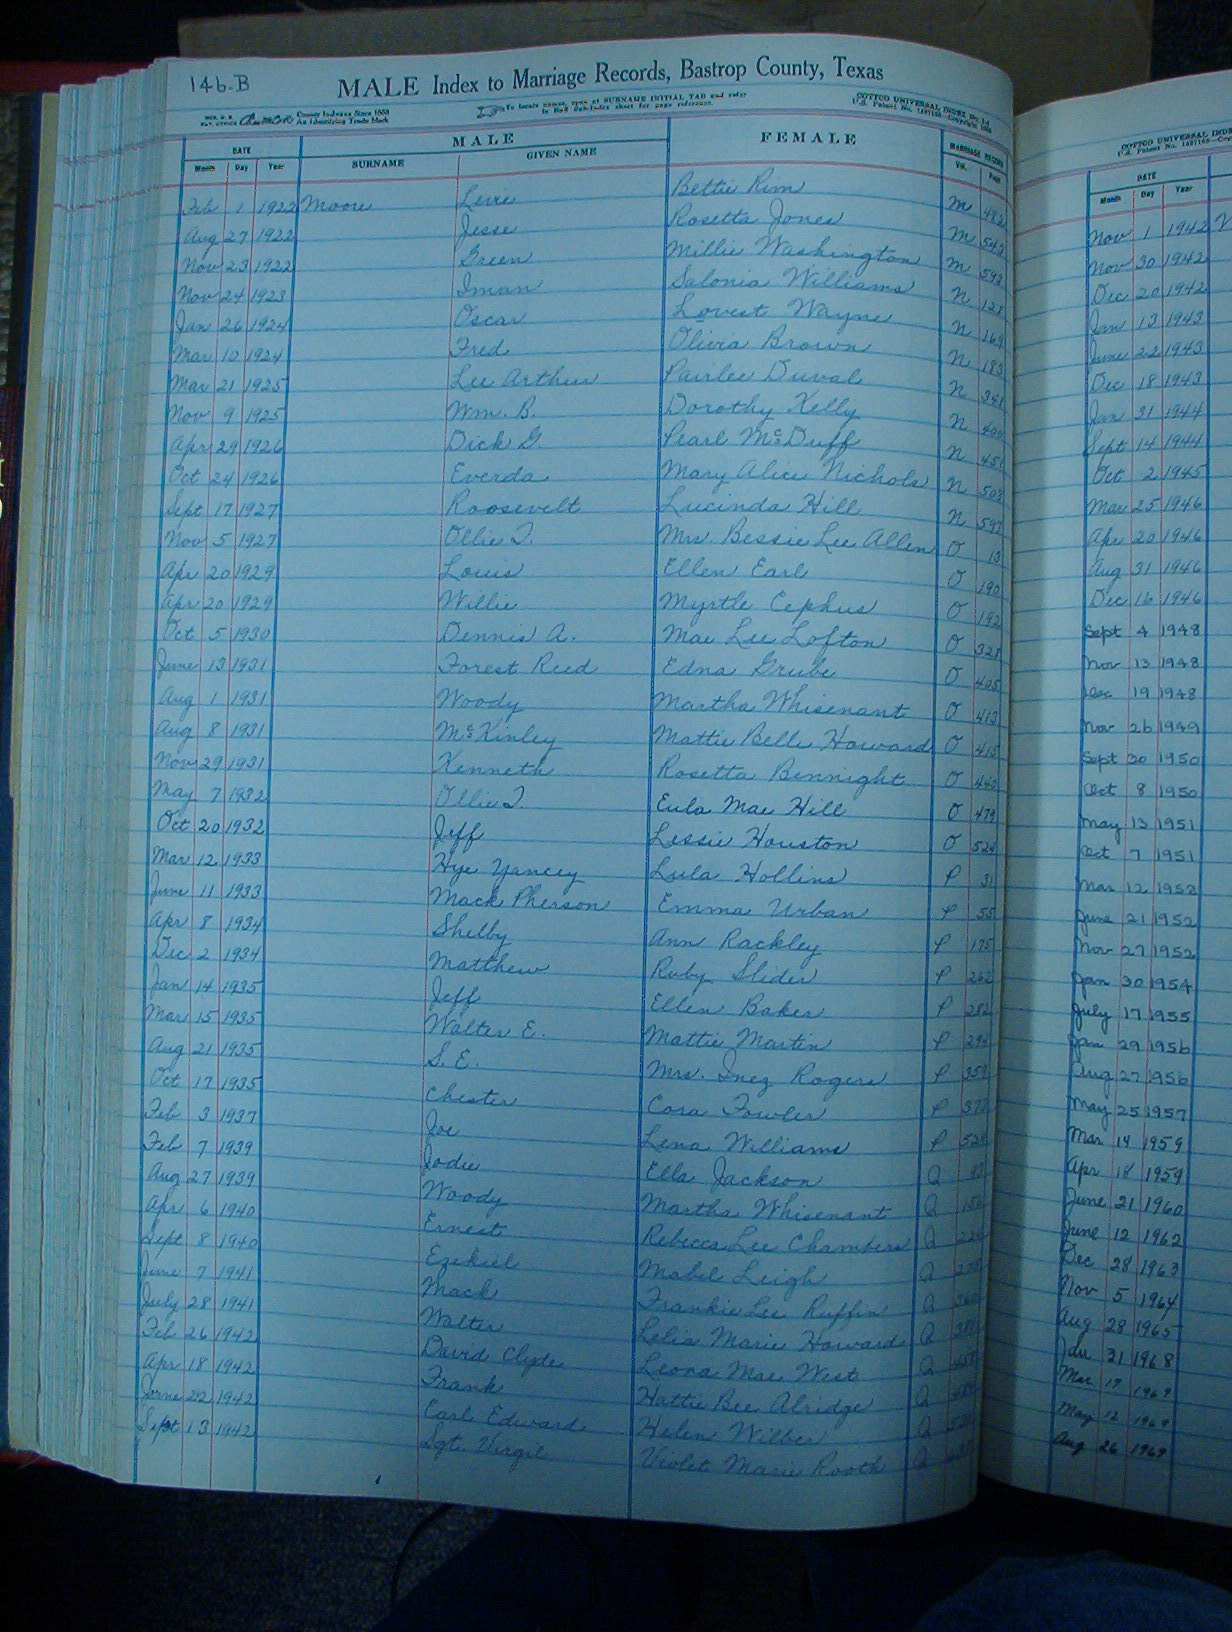 146-B
MALE Index to Marriage Records, Bastrop County, Texas
County Indexes Since 1888
An Identifying Trade Mark
To locate names, open at SURNAME INITIAL TAB and refer
COTTCO UNIVERSAL INDEX
U.S. Patent No.
DATE MALE FEMALE MARRIAGE RECORD
Month Day Year SURNAME GIVEN NAME Vol. Page
Feb 1 1922 Moore Bettie Rim M 482
Aug 27 1922 Jesse Rosetta Jones M 543
Nov 23 1922 Green Millie Washington M 593
Nov 24 1923 Iman Salonia Williams N 128
Jan 26 1924 Oscar Lovest Wayne N 169
Mar 10 1924 Fred Olivia Brown N 183
Mar 21 1925 Lee Arthur Pairlee Duval N 341
Nov 9 1925 Wm. B. Dorothy Kelly N 404
Apr 29 1926 Dick G. Pearl McDuff N 451
Oct 24 1926 Everda Mary Alice Nichols N 503
Sept 17 1927 Roosevelt Lucinda Hill N 597
Nov 5 1927 Ollie T. Mrs. Bessie Lee Allen O 13
Apr 20 1929 Louis Ellen Earl O 190
Apr 20 1929 Willie Myrtle Cephus O 192
Oct 5 1930 Dennis A. Mae Lee Lofton O 328
June 13 1931 Forest Reed Edna Grube O 405
Aug 1 1931 Woody Martha Whisenant O 413
Aug 8 1931 McKinley Mattie Belle Howard O 415
Nov 29 1931 Kenneth Rosetta Bennight O 440
May 7 1932 Ollie T. Eula Mae Hill O 479
Oct 20 1932 Jeff Lessie Houston O 524
Mar 12 1933 Hye Yancey Lula Hollins P 31
June 11 1933 Mack Pherson Emma Urban P 55
Apr 8 1934 Shelby Ann Rackley P 175
Dec 2 1934 Matthew Ruby Slider P 262
Jan 14 1935 Jeff Ellen Baker P 282
Mar 15 1935 Walter E. Mattie Martin P
Aug 21 1935 S. E. Mrs. Inez Rogers P
Oct 17 1935 Chester Cora Fowler P
Feb 3 1937 Joe Lena Williams P
Feb 7 1939 Jodie Ella Jackson Q
Aug 27 1939 Woody Martha Whisenant Q
Apr 6 1940 Ernest Rebecca Lee Chambers Q
Sept 8 1940 Ezekiel Mabel Leigh Q
June 7 1941 Mack Frankie Lee Ruffin Q
July 28 1941 Walter Lelia Marie Howard Q
Feb 26 1942 David Clyde Leona Mae West Q
Apr 18 1942 Frank Hattie Bee Alridge Q
June 22 1942 Earl Edward Helen Wilber Q
Sept 13 1942 Sgt. Virgil Violet Marie Rooth Q
COTTCO UNIVERSAL
U.S. Patent No.
DATE
Month Day Year
Nov 1 1942
Nov 30 1942
Dec 20 1942
Jan 13 1943
June 22 1943
Dec 18 1943
Jan 31 1944
Sept 14 1944
Oct 2 1945
Mar 25 1946
Apr 20 1946
Aug 31 1946
Dec 16 1946
Sept 4 1948
Nov 13 1948
Dec 19 1948
Nov 26 1949
Sept 30 1950
Oct 8 1950
May 13 1951
Oct 7 1951
Mar 12 1952
June 21 1952
Nov 27 1952
Jan 30 1954
July 17 1955
Jan 29 1956
Aug 27 1956
May 25 1957
Mar 14 1959
Apr 18 1959
June 21 1960
June 12 1962
Dec 28 1963
Nov 5 1964
Aug 28 1965
Jan 31 1968
Mar 1969
May 12 1969
Aug 26 1969